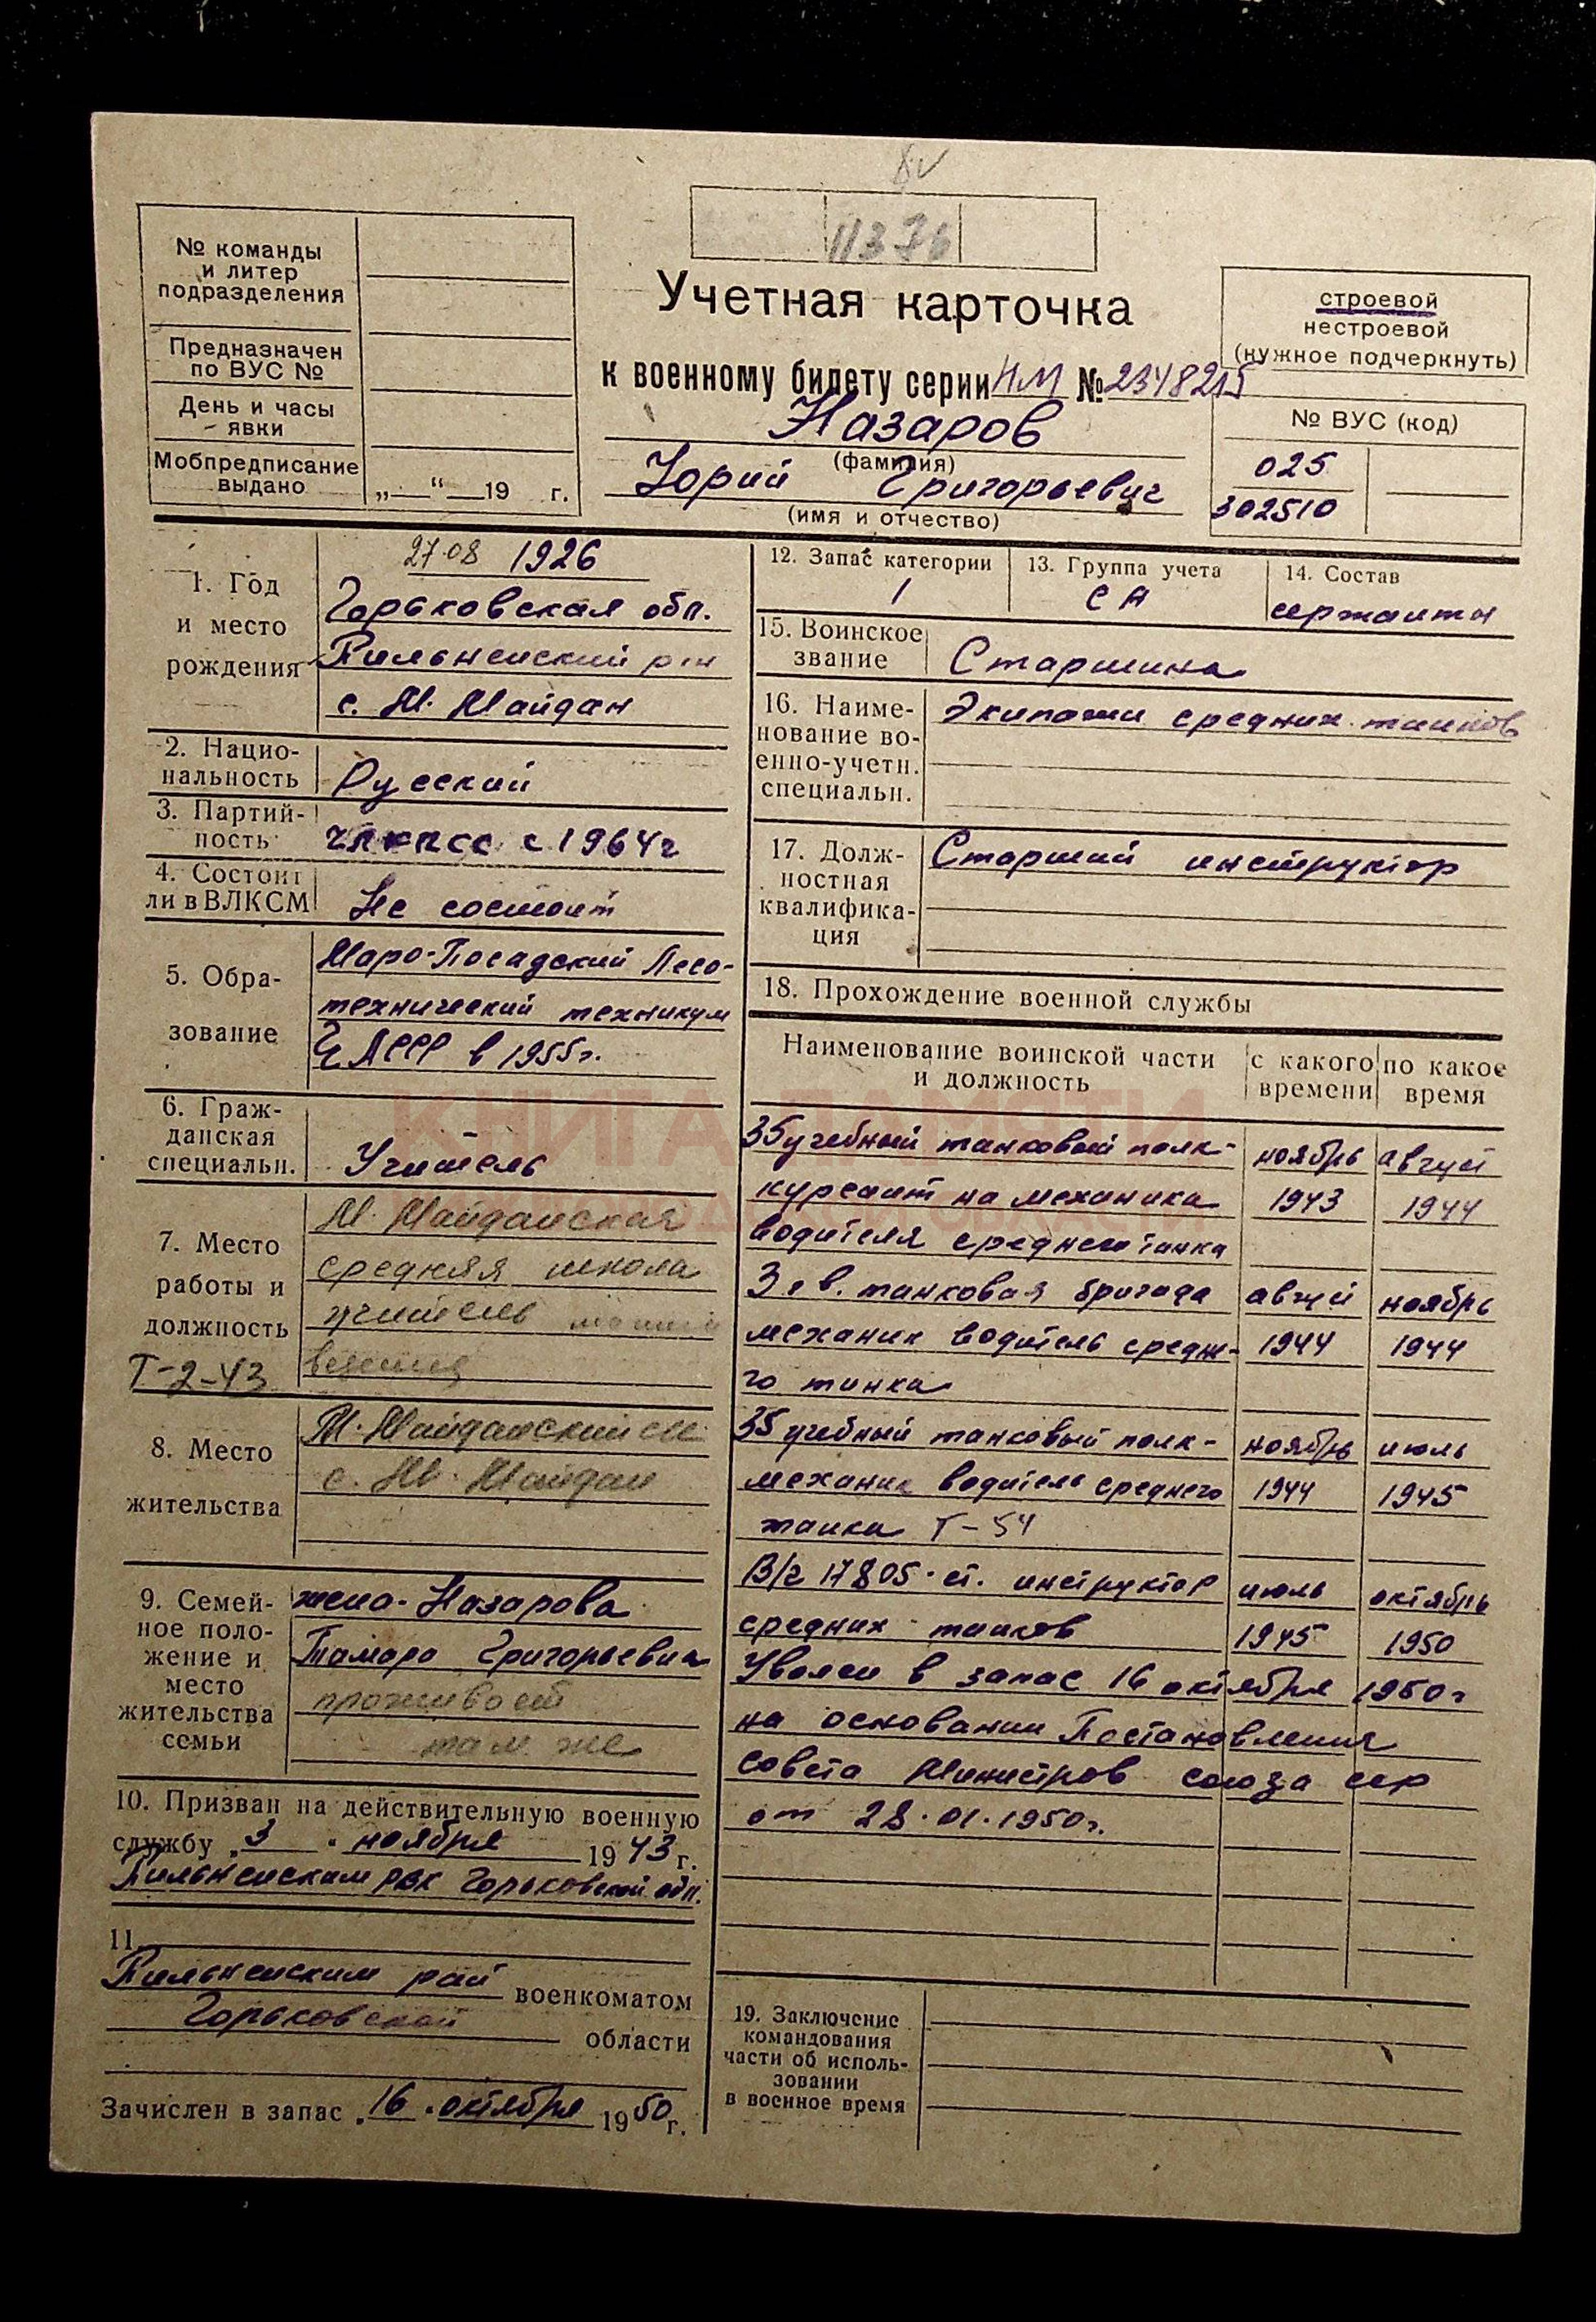 11376
№ команды
и литер
подразделения
Предназначен
по ВУС №
День и часы
явки
Мобпредписание
выдано
„ “ 19 г.
Учетная карточка
к военному билету серии НМ № 2348215
Назаров
(фамилия)
Юрий Григорьевич
(имя и отчество)
строевой
нестроевой
(нужное подчеркнуть)
№ ВУС (код)
025
302510
1. Год
и место
рождения
27.08 1926
Горьковская обл.
Пильненский р-н
с. М. Майдан
2. Нацио-
нальность
Русский
3. Партий-
ность
чл КПСС с 1964г
4. Состоит
ли в ВЛКСМ
Не состоит
5. Обра-
зование
Маро-Посадский Лесо-
технический техникум
ЧАССР в 1955г.
6. Граж-
данская
специальн.
Учитель
7. Место
работы и
должность
Т-2-43
М. Майданская
средняя школа
учитель
ведения
8. Место
жительства
М. Майданский с/с
с. М. Майдан
9. Семей-
ное поло-
жение и
место
жительства
семьи
жена - Назарова
Тамара Григорьевна
проживает
там же
10. Призван на действительную военную
службу „3“ ноября 1943 г.
Пильненским РВК Горьковской обл.
11.
Пильненским рай военкоматом
Горьковской области
Зачислен в запас „16“ октября 1950 г.
12. Запас категории
1
13. Группа учета
СА
14. Состав
сержанты
15. Воинское
звание
Старшина
16. Наиме-
нование во-
енно-учетн.
специальн.
Экипажи средних танков
17. Долж-
ностная
квалифика-
ция
Старший инструктор
18. Прохождение военной службы
Наименование воинской части
и должность
с какого
времени
по какое
время
35 учебный танковый полк - ноябрь август
курсант на механика 1943 1944
водителя среднего танка
3 гв. танковая бригада август ноябрь
механик водитель средне- 1944 1944
го танка
35 учебный танковый полк - ноябрь июль
механик водитель среднего 1944 1945
танка Т-54
В/ч 17805 - ст. инструктор июль октябрь
средних танков 1945 1950
Уволен в запас 16 октября 1950г
на основании Постановления
Совета Министров Союза ССР
от 28.01.1950г.
19. Заключение
командования
части об исполь-
зовании
в военное время
КНИГА ПАМЯТИ